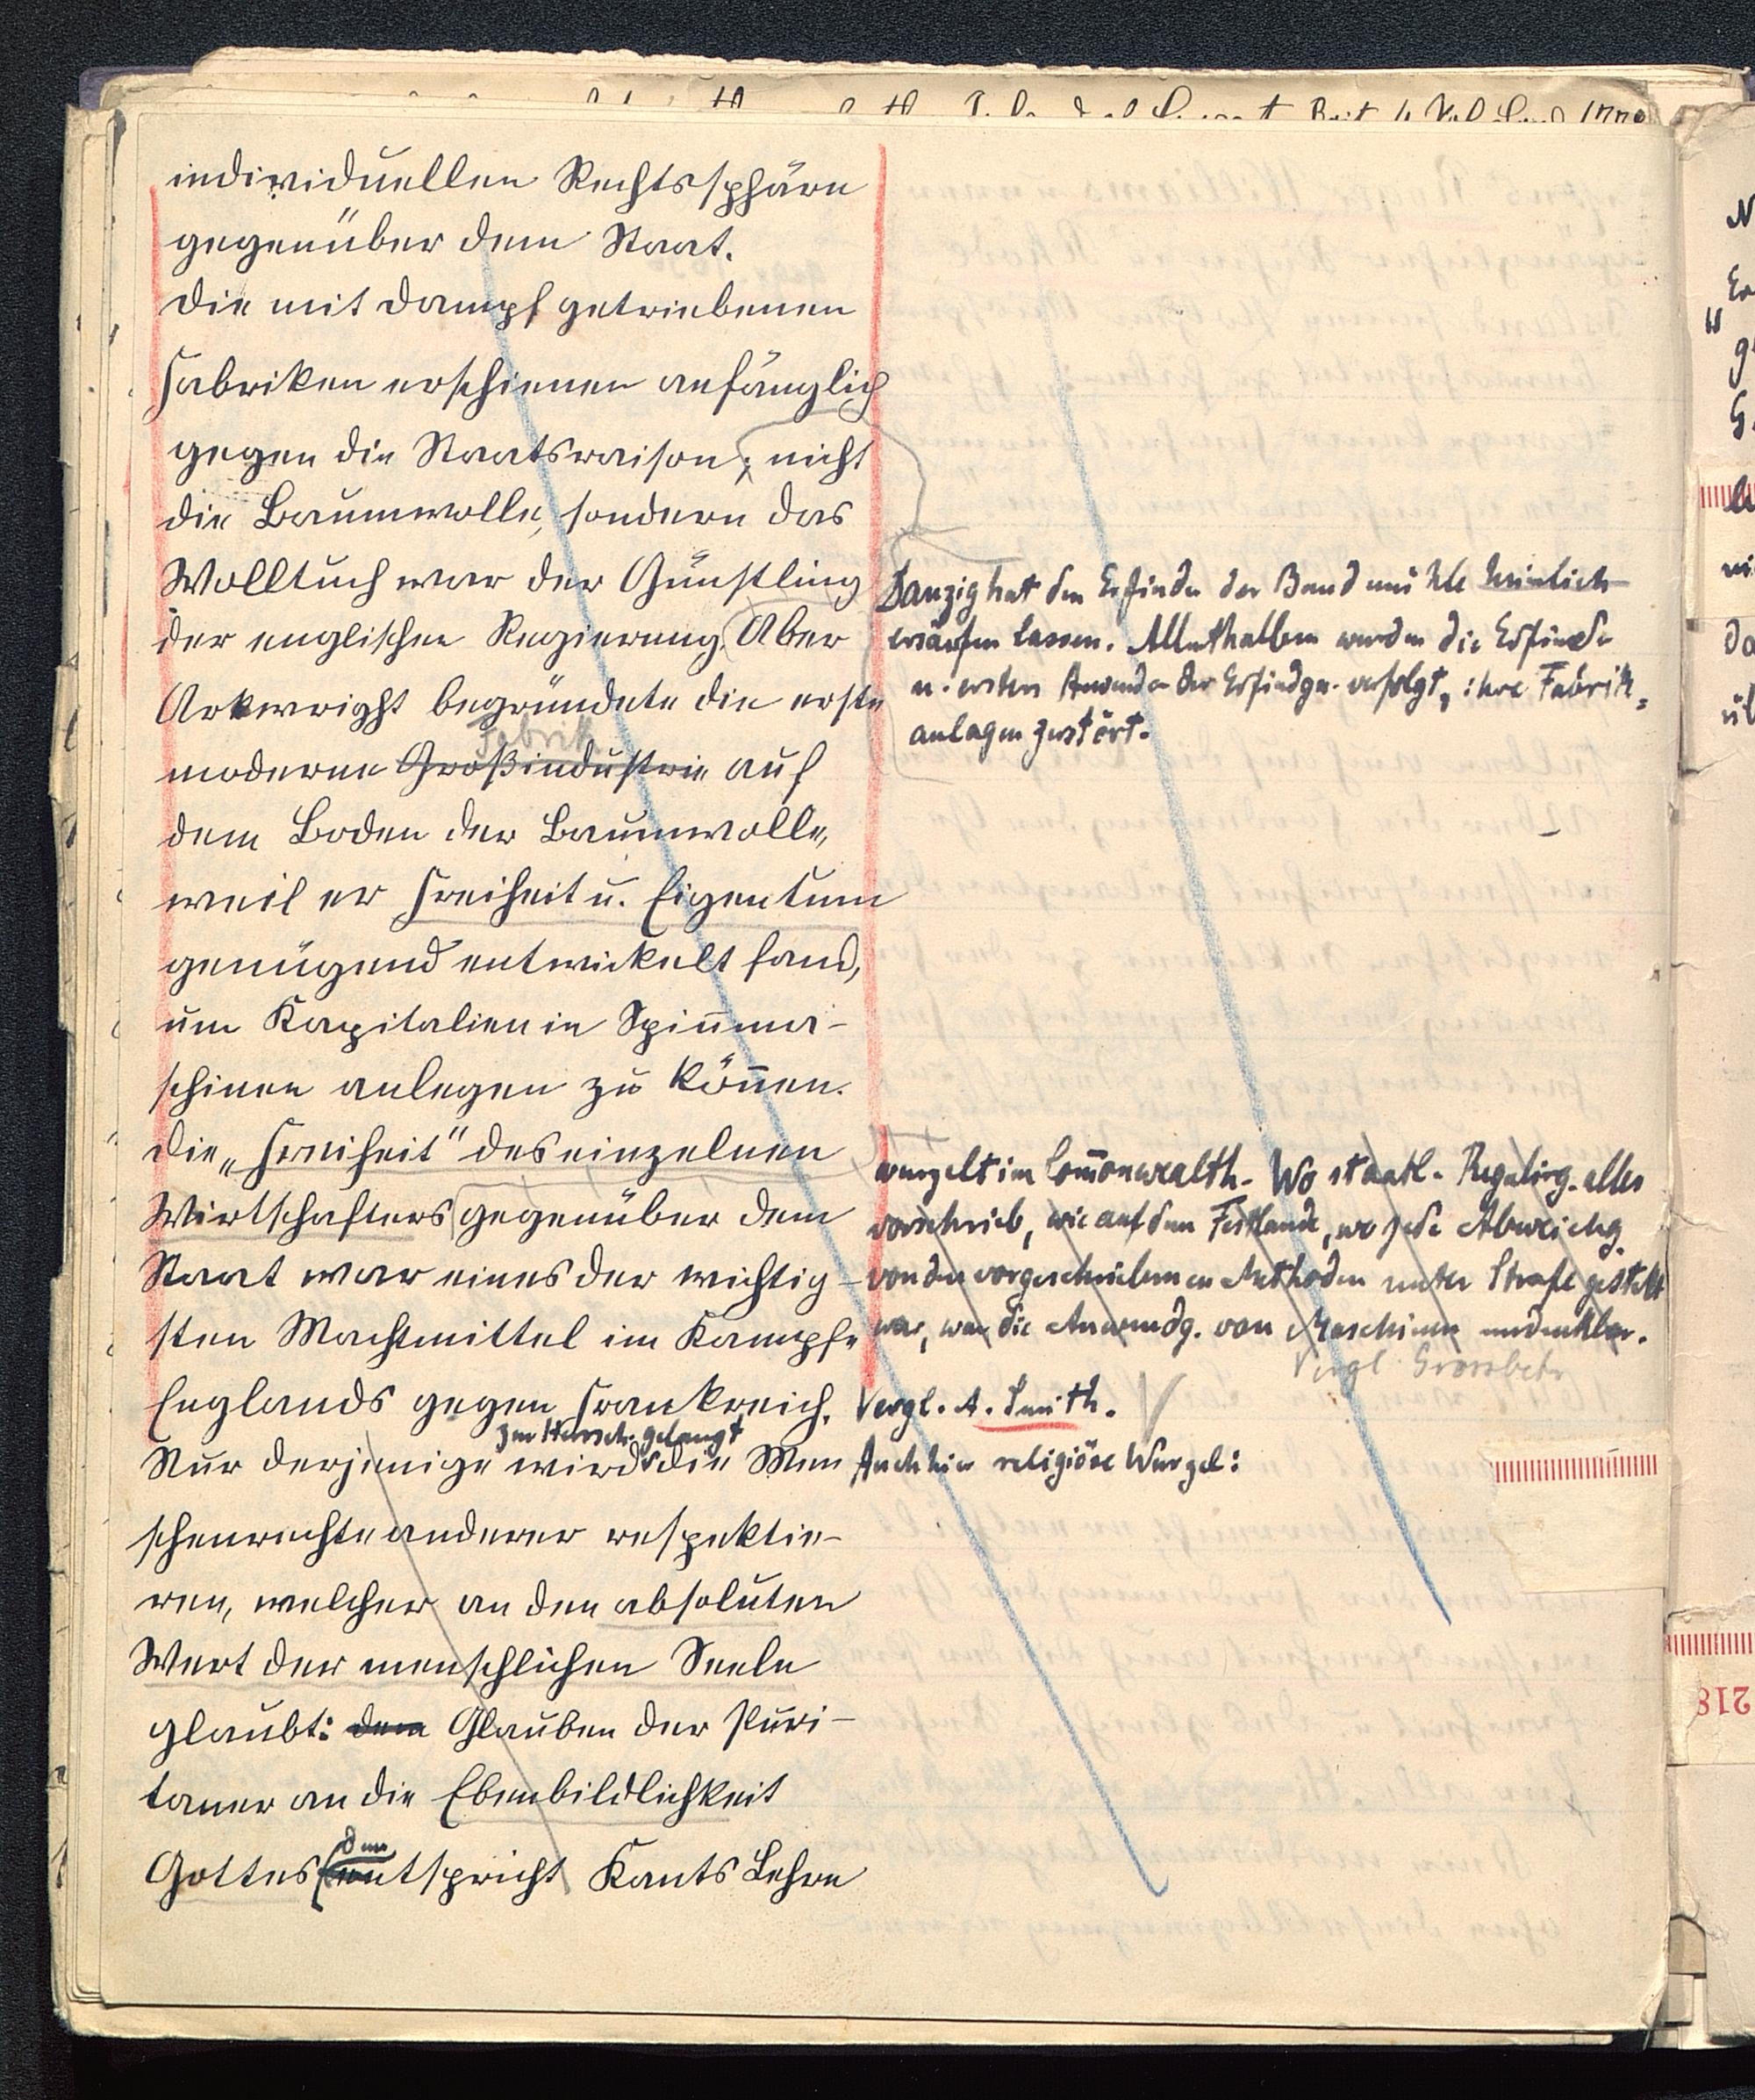 individuellen Rechtssphäre
gegenüber dem Staat.
Die mit Dampf getriebenen
Fabriken erschienen anfänglich
gegen die Staatsraison; nicht
die Baumwolle, sondern das
Wolltuch war der Günstling
der englischen Regierung. Aber
Arkwright begründete die erste
Fabrik
moderne Großindustrie auf
dem Boden der Baumwolle,
weil er Freiheit u. Eigentum
genügend entwickelt fand,
um Kapitalien in Spinnma-
schinen anlegen zu können.
Die „Freiheit" des einzelnen
Wirtschafters gegenüber dem
Staat war eines der wichtig-
sten Machtmittel im Kampfe
Englands gegen Frankreich.
zur Herrsch. gelangt
Nur derjenige wird die Men
schenrechte anderer respektie-
ren, welcher an den absoluten
Wert der menschlichen Seele
glaubt: dem Glauben der Puri-
taner an die Ebenbildlichkeit
dem
Gottes entspricht Kants Lehre
Danzig hat den Erfinder der Bandmühle heimlich
ersäufen lassen. Allenthalben wurden die Erfinder
u. ersten Anwender der Erfindgn. verfolgt, ihre Fabrik-
anlagen zerstört.
wurzelt im Commonwealth. Wo staatl. Regulirg. alles
vorschrieb, wie auf dem Festlande, wo jede Abweichg.
von den vorgeschriebenen Methoden unter Strafe gestellt
war, war die Anwendg. von Maschinen undenkbar.
Vergl.
Vergl. A. Smith.
Auch hier religiöse Wurzel:
218